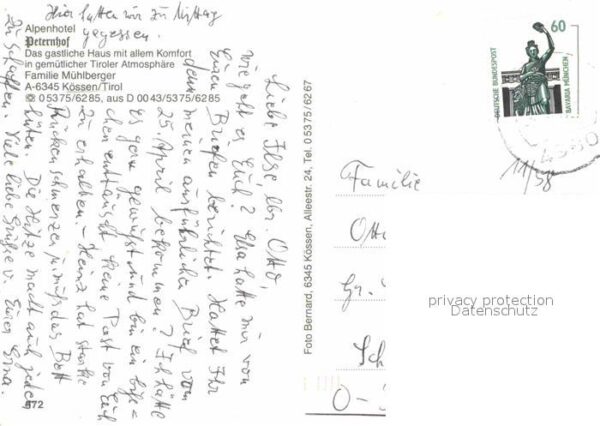 Hier hatten wir zu Mittag
gegessen.
Alpenhotel
Peternhof
Das gastliche Haus mit allem Komfort
in gemütlicher Tiroler Atmosphäre
Familie Mühlberger
A-6345 Kössen/Tirol
☎ 05375/6285, aus D 0043/5375/6285
Liebe Ilse, lbr. Otto,
wie geht es Euch? Elsa hatte mir von
Euren Briefen berichtet. Hattet Ihr
denn meinen ausführlichen Brief vom
25. April bekommen? Ich hätte
es gern gewußt und bin ein biß-
chen enttäuscht keine Post von Euch
zu erhalten. - Heinz hat starke
Rückenschmerzen u. muß das Bett
hüten. Die Hitze macht auch jedem
zu schaffen. Viele liebe Grüße v. Eurer Erna.
572
Foto Bernard, 6345 Kössen, Alleestr. 24, Tel. 05375/6267
60
DEUTSCHE BUNDESPOST
BAVARIA MÜNCHEN
Familie
Otto
Gr.
Sch
O-
privacy protection
Datenschutz